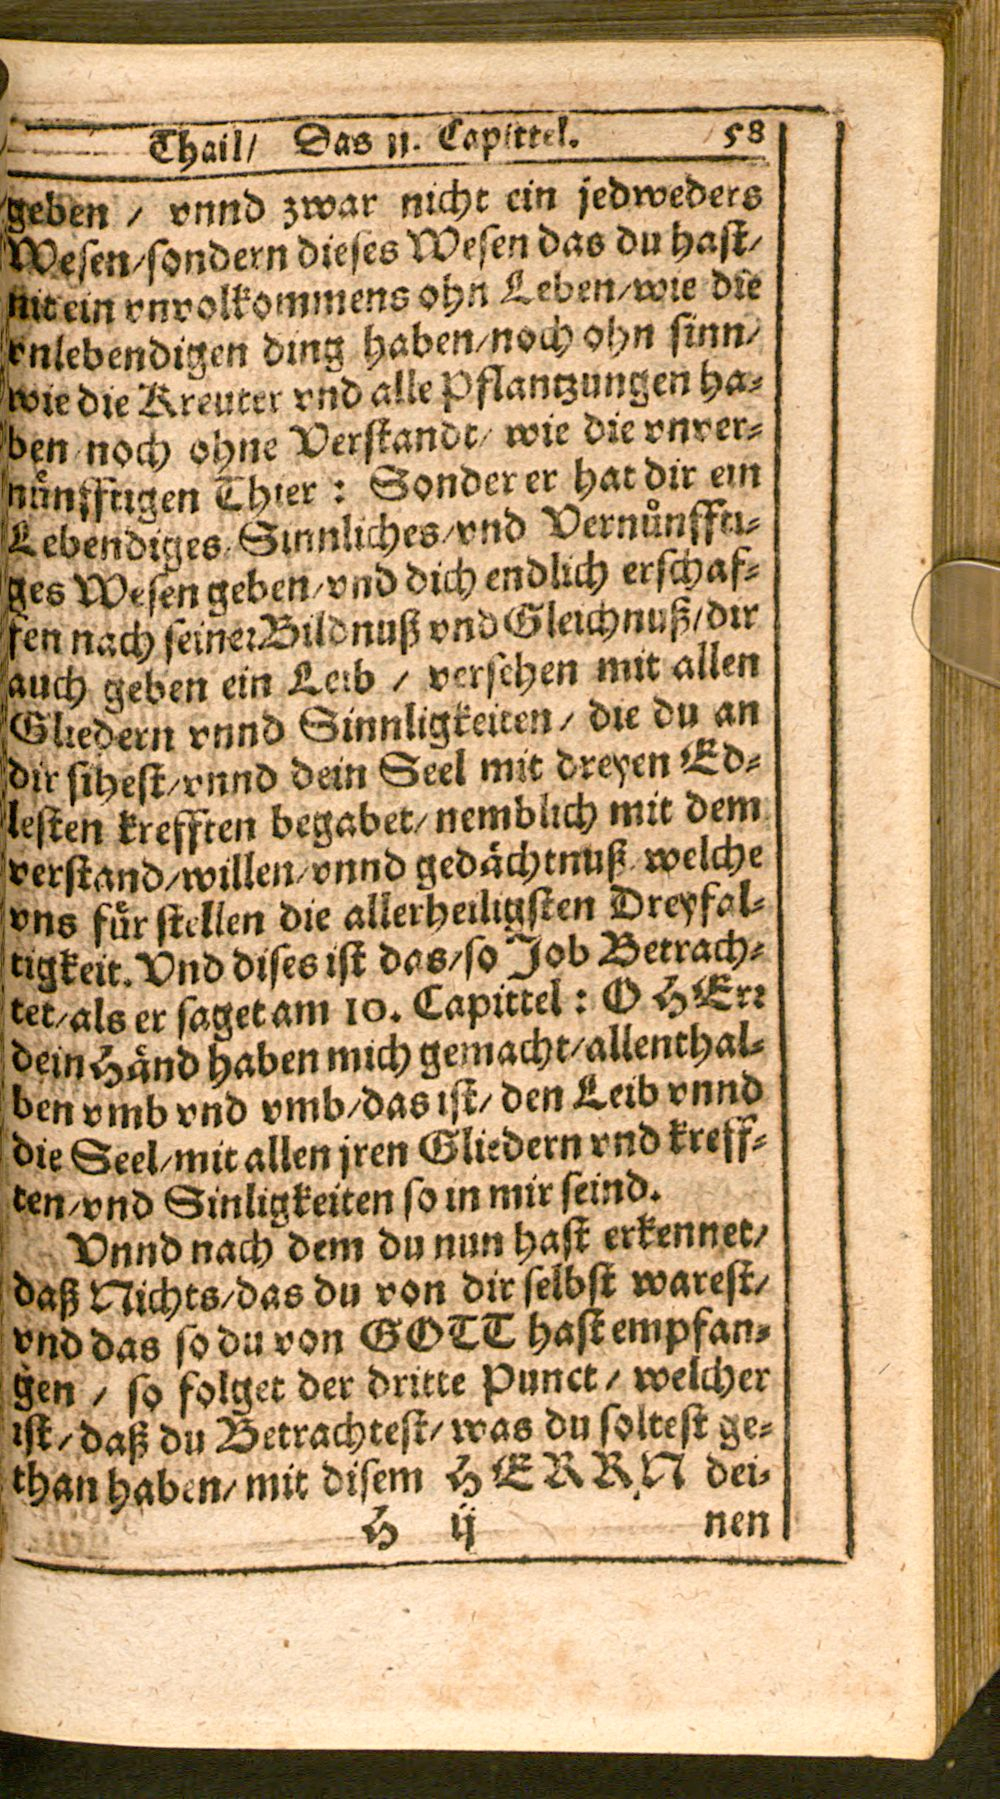 Thail/ Das 11. Capittel. 58
geben / vnnd zwar nicht ein jedweders
Wesen/sondern dieses Wesen das du hast/
nit ein vnvolkommens ohn Leben/wie die
vnlebendigen ding haben/noch ohn sinn/
wie die Kreuter vnd alle Pflantzungen ha-
ben/noch ohne Verstandt/ wie die vnver-
nůnfftigen Thier: Sonder er hat dir ein
Lebendiges/Sinnliches/vnd Vernůnffti-
ges Wesen geben/vnd dich endlich erschaf-
fen nach seiner Bildnuß vnd Gleichnuß/dir
auch geben ein Leib / versehen mit allen
Gliedern vnnd Sinnligkeiten/ die du an
dir sihest/vnnd dein Seel mit dreyen Ed-
lesten krefften begabet/nemblich mit dem
verstand/willen/vnnd gedächtnuß welche
vns fůr stellen die allerheiligsten Dreyfal-
tigkeit. Vnd dises ist das/so Job Betrach-
tet/als er saget am 10. Capittel: O HErr
dein Händ haben mich gemacht/allenthal-
ben vmb vnd vmb/das ist/ den Leib vnnd
die Seel/mit allen jren Gliedern vnd kreff-
ten/vnd Sinligkeiten so in mir seind.
Vnnd nach dem du nun hast erkennet/
daß Nichts/das du von dir selbst warest/
vnd das so du von GOTT hast empfan-
gen / so folget der dritte Punct / welcher
ist/daß du Betrachtest/was du soltest ge-
than haben/mit disem HERRN dei-
H ij nen